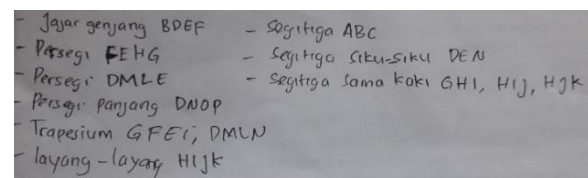 - Jajar genjang BDEF
- Persegi FEHG
- Persegi DMLE
- Persegi panjang DNOP
- Trapesium GFEI, DMLN
- layang-layang HIJK
- Segitiga ABC
- Segitiga siku-siku DEN
- Segitiga sama kaki GHI, HIJ, HJK